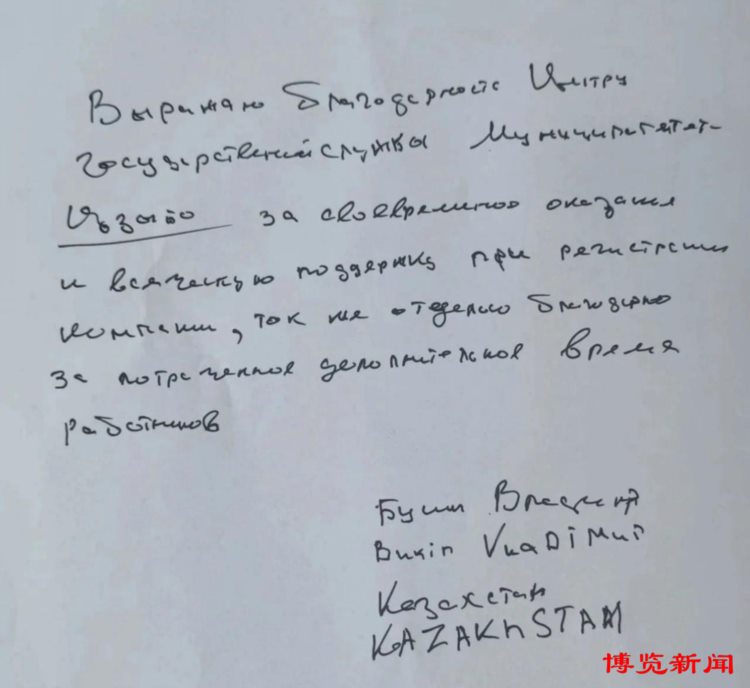 Выражаю благодарность Центру
государственной службы Муниципалитета
за своевременно оказания
и всяческую поддержку при регистрации
компании, так же отдельно благодарю
за потраченное дополнительное время
работников
Владимир
VLADIMIR
Казахстан
KAZAKHSTAN
博览新闻